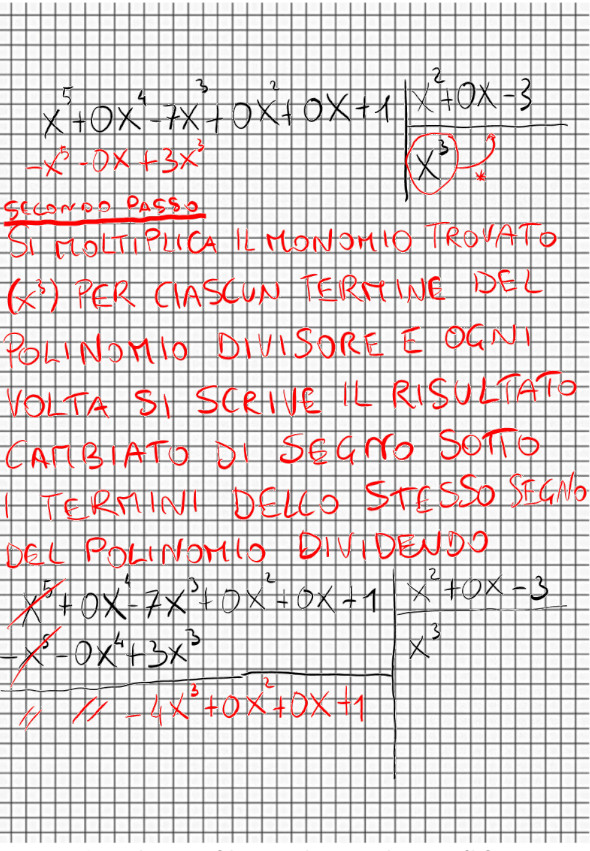 x⁵+0x⁴-7x³+0x²+0x+1 x²+0x-3
-x⁵-0x+3x³ x³ *
SECONDO PASSO
SI MOLTIPLICA IL MONOMIO TROVATO
(x³) PER CIASCUN TERMINE DEL
POLINOMIO DIVISORE E OGNI
VOLTA SI SCRIVE IL RISULTATO
CAMBIATO DI SEGNO SOTTO
I TERMINI DELLO STESSO SEGNO
DEL POLINOMIO DIVIDENDO
x⁵+0x⁴-7x³+0x²+0x+1 x²+0x-3
-x⁵-0x⁴+3x³ x³
// // -4x³+0x²+0x+1